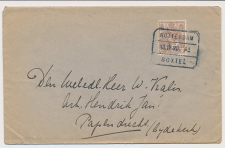 AMSTERDAM
BOXTEL
Den Weledel Heer W. Kalis
Hendrik Jan
Papendrecht